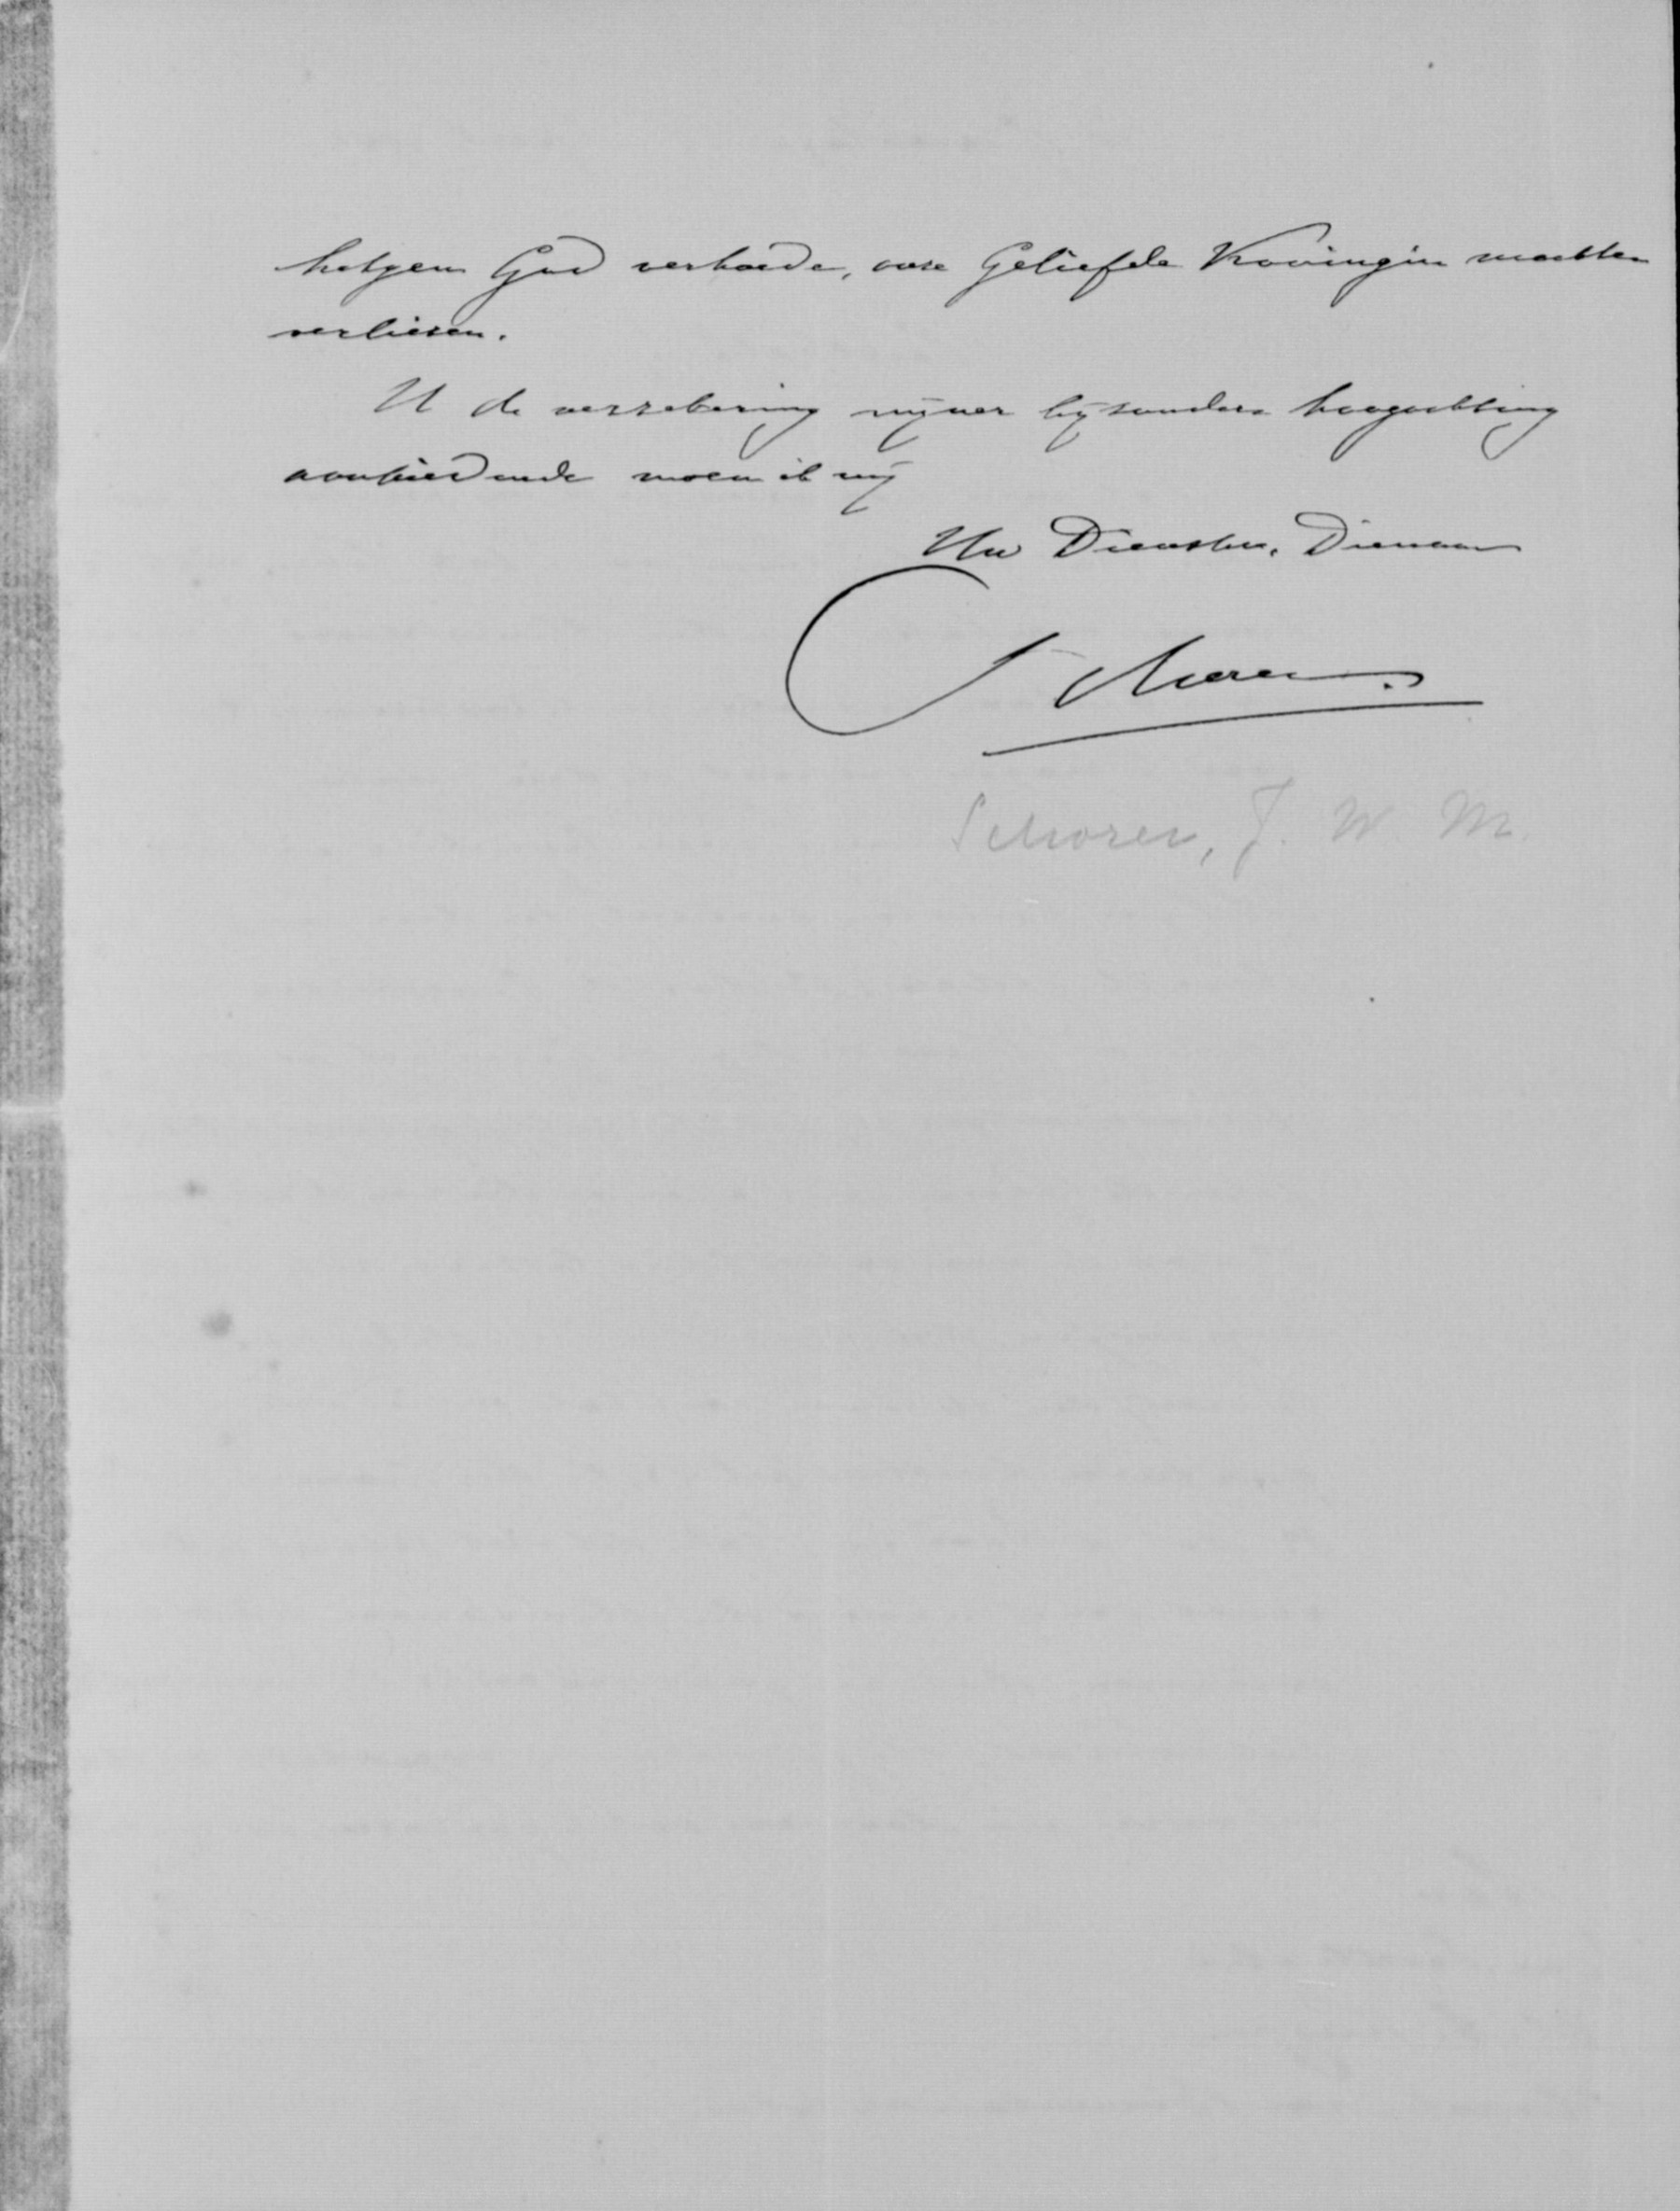 hetgeen God verhoede, onze Geliefde Koningin mochten
verliezen.
U de verzekering mijner bijzondere hoogachting
aanbiedende noem ik mij
Uw Dienstw. Dienaar
Schorer.
Schorer, J. W. M.